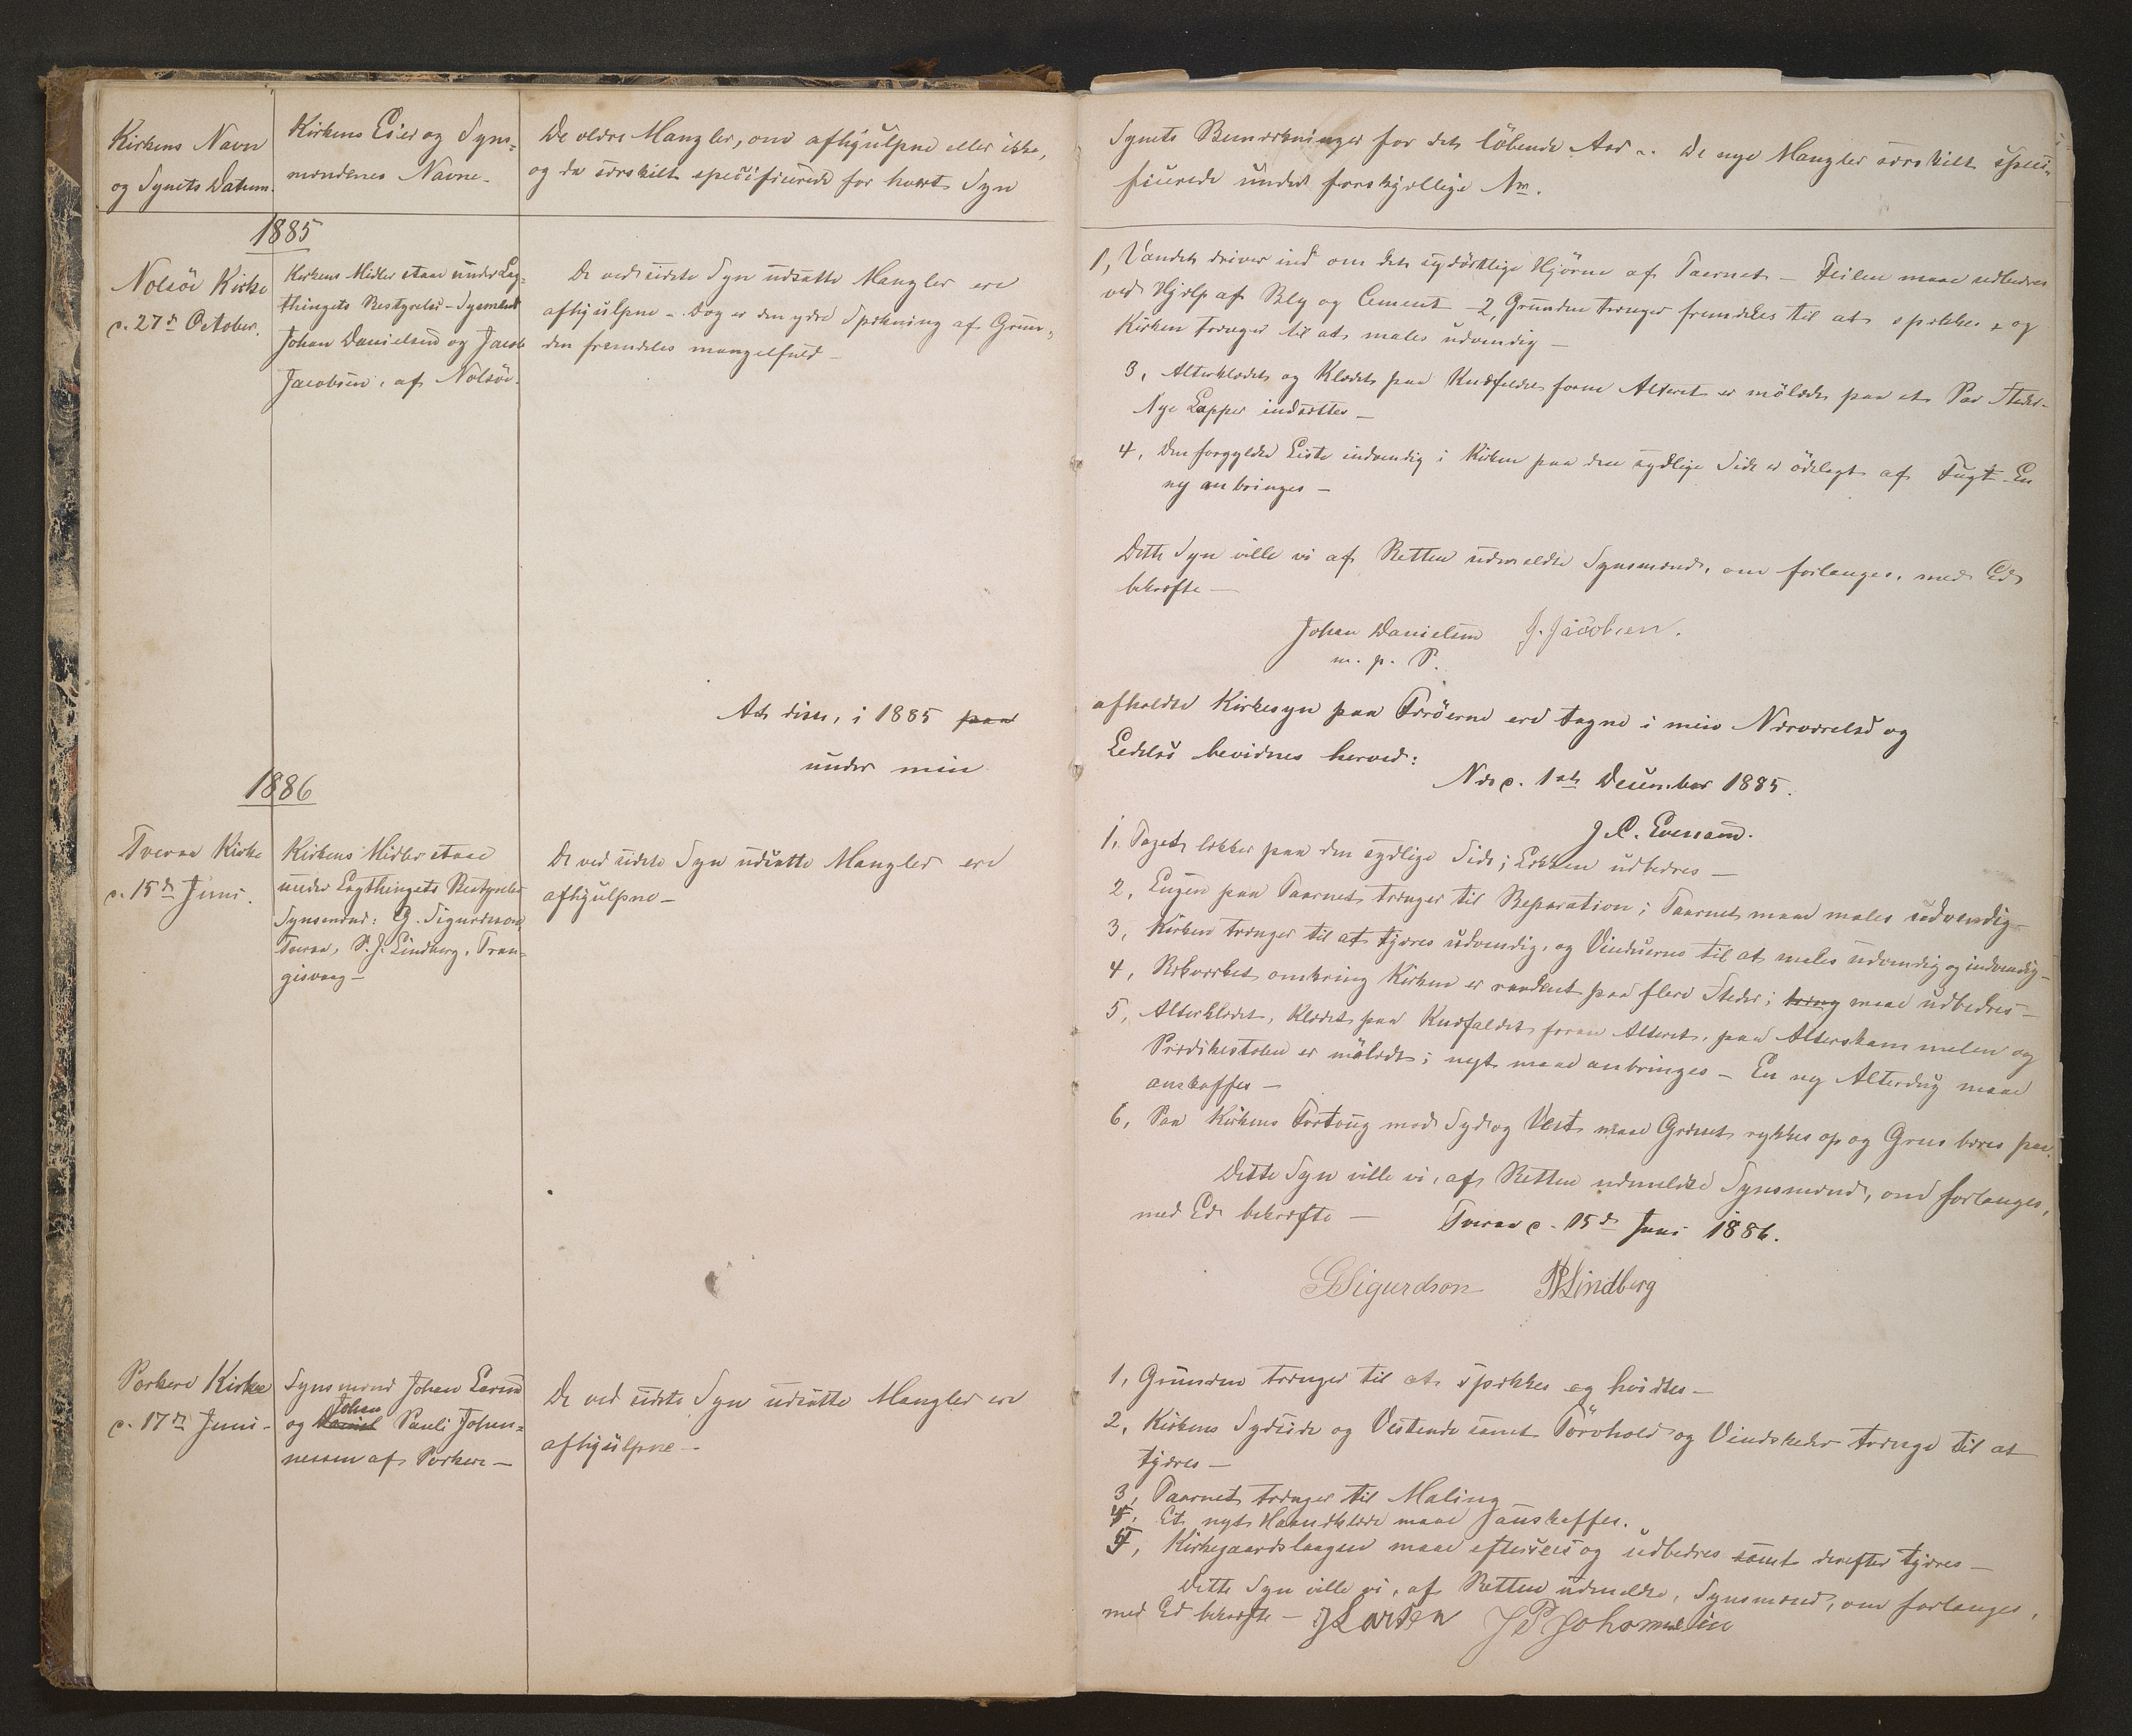 Kirkens Navn
og Synets Datum.
Kirkens Eier og Syns-
mændenes Navne.
De ældre Mangler, om afhjulpne eller ikke,
og da særskilt specificerede for hvert Syn
1885
Nolsöe Kirke
d. 27de October.
Kirkens Midler staae under Lag-
thingets Bestyrelse - Synsmænd
Johan Danielsen og Jacob
Jacobsen, af Nolsöe.
De ved sidste Syn udsatte Mangler ere
afhjulpne - Dog er den ydre Spækning af Grun-
den fremdeles mangelfuld -
At disse, i 1885 paa
under min
1886
Tveraa Kirke
d. 15de Juni.
Kirkens Midler staae
under Lagthingets Bestyrelse
Synsmænd: G. Sigurdson,
Tveraa, P. J. Lindberg, Tran-
gisvaag -
De ved sidste Syn udsatte Mangler ere
afhjulpne -
Porkere Kirke
d. 17de Juni -
Synsmænd Johan Larsen
Johan
og Daniel Pauli Johan-
nessen af Porkere -
De ved sidste Syn udsatte Mangler ere
afhjulpne -
Synets Bemærkninger for det löbende Aar. De nye Mangler særskilt speci-
ficerede under forskjellige No.
1, Vandet driver ind om det sydöstlige Hjörne af Taarnet - Feilen maae udbedres
ved Hjælp af Bly og Cement - 2, Grunden trænger fremdeles til at spækkes, og
Kirken trænger til at males udvendig -
3, Alterklædet og Klædet paa Knæfaldet foran Alteret er mölædt paa et Par Steder -
Nye Lapper indsættes -
4, Den forgyldte Liste indvendig i Kirken paa den sydlige Side er ödelagt af Fugt - En
ny anbringes -
Dette Syn ville vi af Retten udmeldte Synsmænd, om forlanges, med Ed
bekræfte -
Johan Danielsen J. Jacobsen.
m. p. P.
afholdte Kirkesyn paa Færöerne ere tagne i min Nærværelse og
Ledelse bevidnes herved:
Næs d. 1ste December 1885.
J. C. Evensen.
1, Taget lækker paa den sydlige Side; Lækken udbedres -
2, Lugen paa Taarnet trænger til Reparation; Taarnet maae males udvendig -
3, Kirken trænger til at tjæres udvendig, og Vinduerne til at males udvendig og indvendig -
4, Rækværket omkring Kirken er raaddent paa flere Steder; træng maae udbedres -
5, Alterklædet, Klædet paa Knæfaldet foran Alteret, paa Alterskammelen og
Prædikestolen er mölædt; nyt maae anbringes - En ny Alterdug maae
anskaffes -
6, Paa Kirkens Fortoug mod Syd og Vest maae Græsset rykkes op og Grus bæres paa.
Dette Syn ville vi, af Retten udmeldte Synsmænd, om forlanges,
med Ed bekræfte - Tveraa d. 15de Juni 1886.
GSigurdson PJLindberg
1, Grunden trænger til at spækkes og hvidtes -
2, Kirkens Sydside og Vestende samt Törvhold og Vindskeder trænge til at
tjæres -
3, Taarnet trænger til Maling
4, Et nyt Haandklæde maae anskaffes.
5, Kirkegaardslaagen maae efterseees og udbedres samt derefter tjæres -
Dette Syn ville vi, af Retten udmeldte, Synsmænd, om forlanges,
med Ed bekræfte - JLarsen JPJohannesen